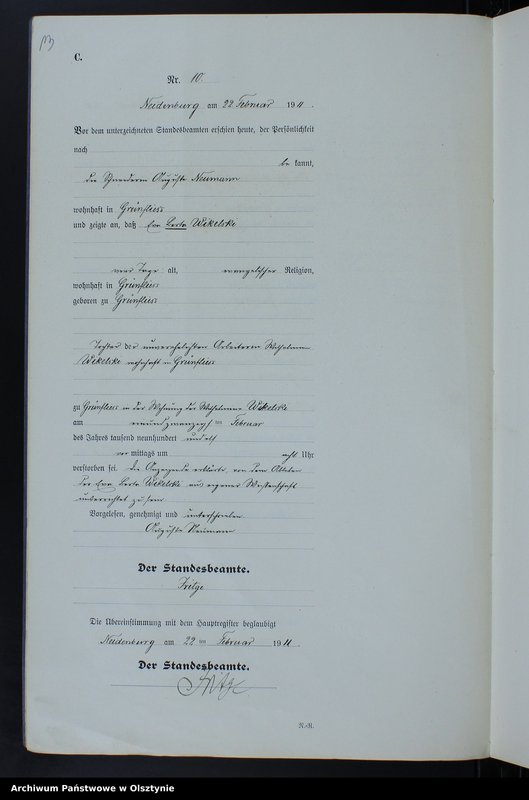 C.
Nr. 10.
Neidenburg am 22 Februar 1911.
Vor dem unterzeichneten Standesbeamten erschien heute, der Persönlichkeit
nach
be kannt,
die Auguste Neumann
wohnhaft in Grünfliess
und zeigte an, daß Eva Berta Wikelski
Tage alt, evangelischer Religion,
wohnhaft in Grünfliess
geboren zu Grünfliess
Tochter der unverehelichten Arbeiterin Wilhelmine
Wikelski wohnhaft in Grünfliess
zu Grünfliess in der Wohnung der Wilhelmine Wikelski
am einundzwanzigsten Februar
des Jahres tausend neunhundert und elf
vor mittags um acht Uhr
verstorben sei. Die Anzeigende erklärte, von dem Ableben
der Eva Berta Wikelski aus eigener Wissenschaft
unterrichtet zu sein
Vorgelesen, genehmigt und unterschrieben
Auguste Neumann
Der Standesbeamte.
Die Übereinstimmung mit dem Hauptregister beglaubigt
Neidenburg am 22 ten Februar 1911.
Der Standesbeamte.
N.-R.
Archiwum Państwowe w Olsztynie